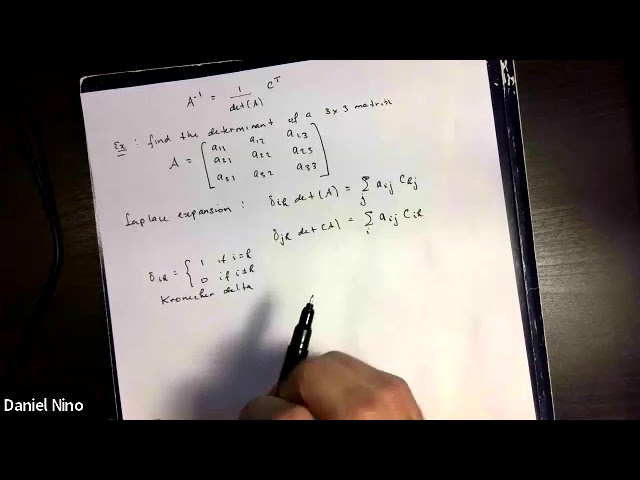 A⁻¹ = 1/det(A) Cᵀ
Ex: find the determinant of a 3x3 matrix
A = [a₁₁ a₁₂ a₁₃
a₂₁ a₂₂ a₂₃
a₃₁ a₃₂ a₃₃]
Laplace expansion: δᵢₖ det(A) = Σⱼ aᵢⱼ Cₖⱼ
δⱼₖ det(A) = Σᵢ aᵢⱼ Cᵢₖ
δᵢₖ = { 1 if i=k
0 if i≠k
Kronecker delta
Daniel Nino